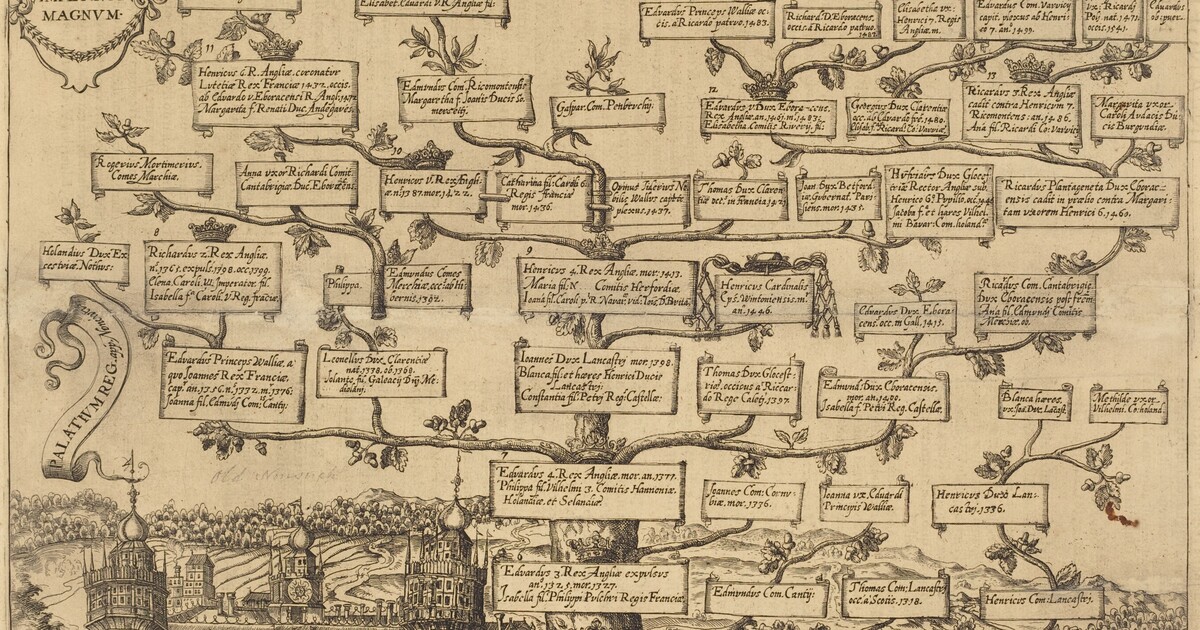 MAGNVM.
Elisabet. Eduardi
V R. Angliæ fil:
Edvardus Princeps Walliæ oc:
cis. a Ricardo patruo. 1483.
Richard D. Eboracens.
occis. a Ricardo patruo.
1483
Elisabetha vx:
Henrici 7. Regis
Angliæ. m.
Edvardus Com. Varvicy
capit. plexus ab Henri:
co 7. anº 1499.
vx: Ricardi
Poli nat. 1471.
occis. 1541.
11
Henricus 6. R. Angliæ. coronatur
Lutetiæ Rex Franciæ 1432. occis.
ab Edvardo v. Eboracensi R. Angl: 1472
Margareta f. Renati Duc. Andegavẽs.
Edmundus Com. Ricomontensis
Margaretha f. Ioanis Ducis So:
mersetij.
Gaspar. Com. Penbrvchij.
12
Edvardus v Dux Ebora-cens.
Rex Angliæ. an. 1461. m. 1483.
Elisabetha Comitis Riverij. fil:
Georgius Dux Clarentiæ
occ. ab Edvardo fre. 1480.
Elisab. f. Ricard. Co: Varviæ.
13
Ricardus 3. Rex Angliæ
cadit contra Henricum 7.
Ricomontens. an. 1486.
Ana fil. Ricardi Co: Varvici
Margarita vxor
Caroli Audacis Du:
cis Burgundiæ.
Rogerius Mortimerius.
Comes Marchiæ.
Anna vxor Richardi Comit.
Cantabrigiæ. Duc. Eboracẽns.
10
Henricus V. Rex Angli:
æ. n. 1387. mor. 1422.
Catharina fil: Caroli 6.
Regis franciæ
mor. 1436.
Ovinus Tiderius No
bilis Wallus capite
plexus. 1437.
Thomas Dux Claren
tiæ occ. in francia. 1421
Joan Dux Betford
iæ. gubernat. Pari
siens. mor. 1435.
Hvfridus Dux Gloces
triæ Rector Angliæ sub
Henrico 6. Populo. occ. 1446
Iacoba f. et hæres Vilhel:
mi Bavar: Com. holand.
Ricardus Plantageneta Dux Eborac:
ensis cadit in prælio contra Margari:
tam vxorem Henrici 6. 1460.
Holandius Dux Ex
cestriæ. Nothus:
8
Richardus 2. Rex Angliæ.
n. 1365. expuls. 1398. occ. 1399.
Elena. Caroli. VI. Imperator. fil.
Isabella fª Caroli. V. Reg. fraciæ.
Philippa.
Edmundus Comes
Marchiæ. occ: ab Hi
bernis. 1392.
9
Henricus 4. Rex Angliæ. mor. 1413.
Maria fil: N Comitis Herfordiæ
Ioana fil. Caroli p. R. Navar: vid. Ioïs D. Brita.
Henricus Cardinalis
Eps. Wintoniensis. m.
an. 1446.
Edvardus Dux Ebora:
cens. occ. in Gall. 1415.
Ricadus Com. Cantabrigiæ.
Dux Eboracensis post frem
Ana fil. Edmundi Comitis
Marchiæ. oc.
PALATIVM REG.
Edvardus Princeps Walliæ. a
quo Joannes Rex Franciæ.
cap. an. 1356. n. 1332. m. 1376:
Joanna fil. Edmvdi Com: Canty:
Leonellus Dux Clarentiæ
nat. 1338. ob. 1369.
Iolante. fil. Galeacij Dni Me:
diolani.
Ioannes Dux Lancastrj mor. 1398.
Blanca. fil: et hæres Henrici Ducis
Lancastrj:
Constantia fil. Petrj Reg: Castellæ:
Thomas Dux Glocest:
riæ. occisus a Ricar:
do Rege Calety. 1397.
Edmund. Dux Eboracensis.
mor. an. 1400.
Isabella f. Petri Reg. Castellæ.
Blanca hæres.
Methilde vxor
Vilhelmi. Co: holand.
7
Edvardus 4. Rex Angliæ. mor. an. 1377.
Philippa fil. Vilhelmi 3. Comitis Hanneniæ.
Holandiæ. et Selandiæ.
Joannes Com: Cornu:
biæ. mor. 1336.
Joanna vx. Eduardi
Principis Walliæ.
Henricus Dux Lan:
castrj. 1336.
6
Edvardus 3. Rex Angliæ expulsus
anº 1325. mor. 1327.
Isabella fil. Philippi Pulchri Regis Franciæ.
Edmundus Com. Cantij.
Thomas Com: Lancastrj
occ. a Scotis. 1318.
Henricus Com: Lancastri.